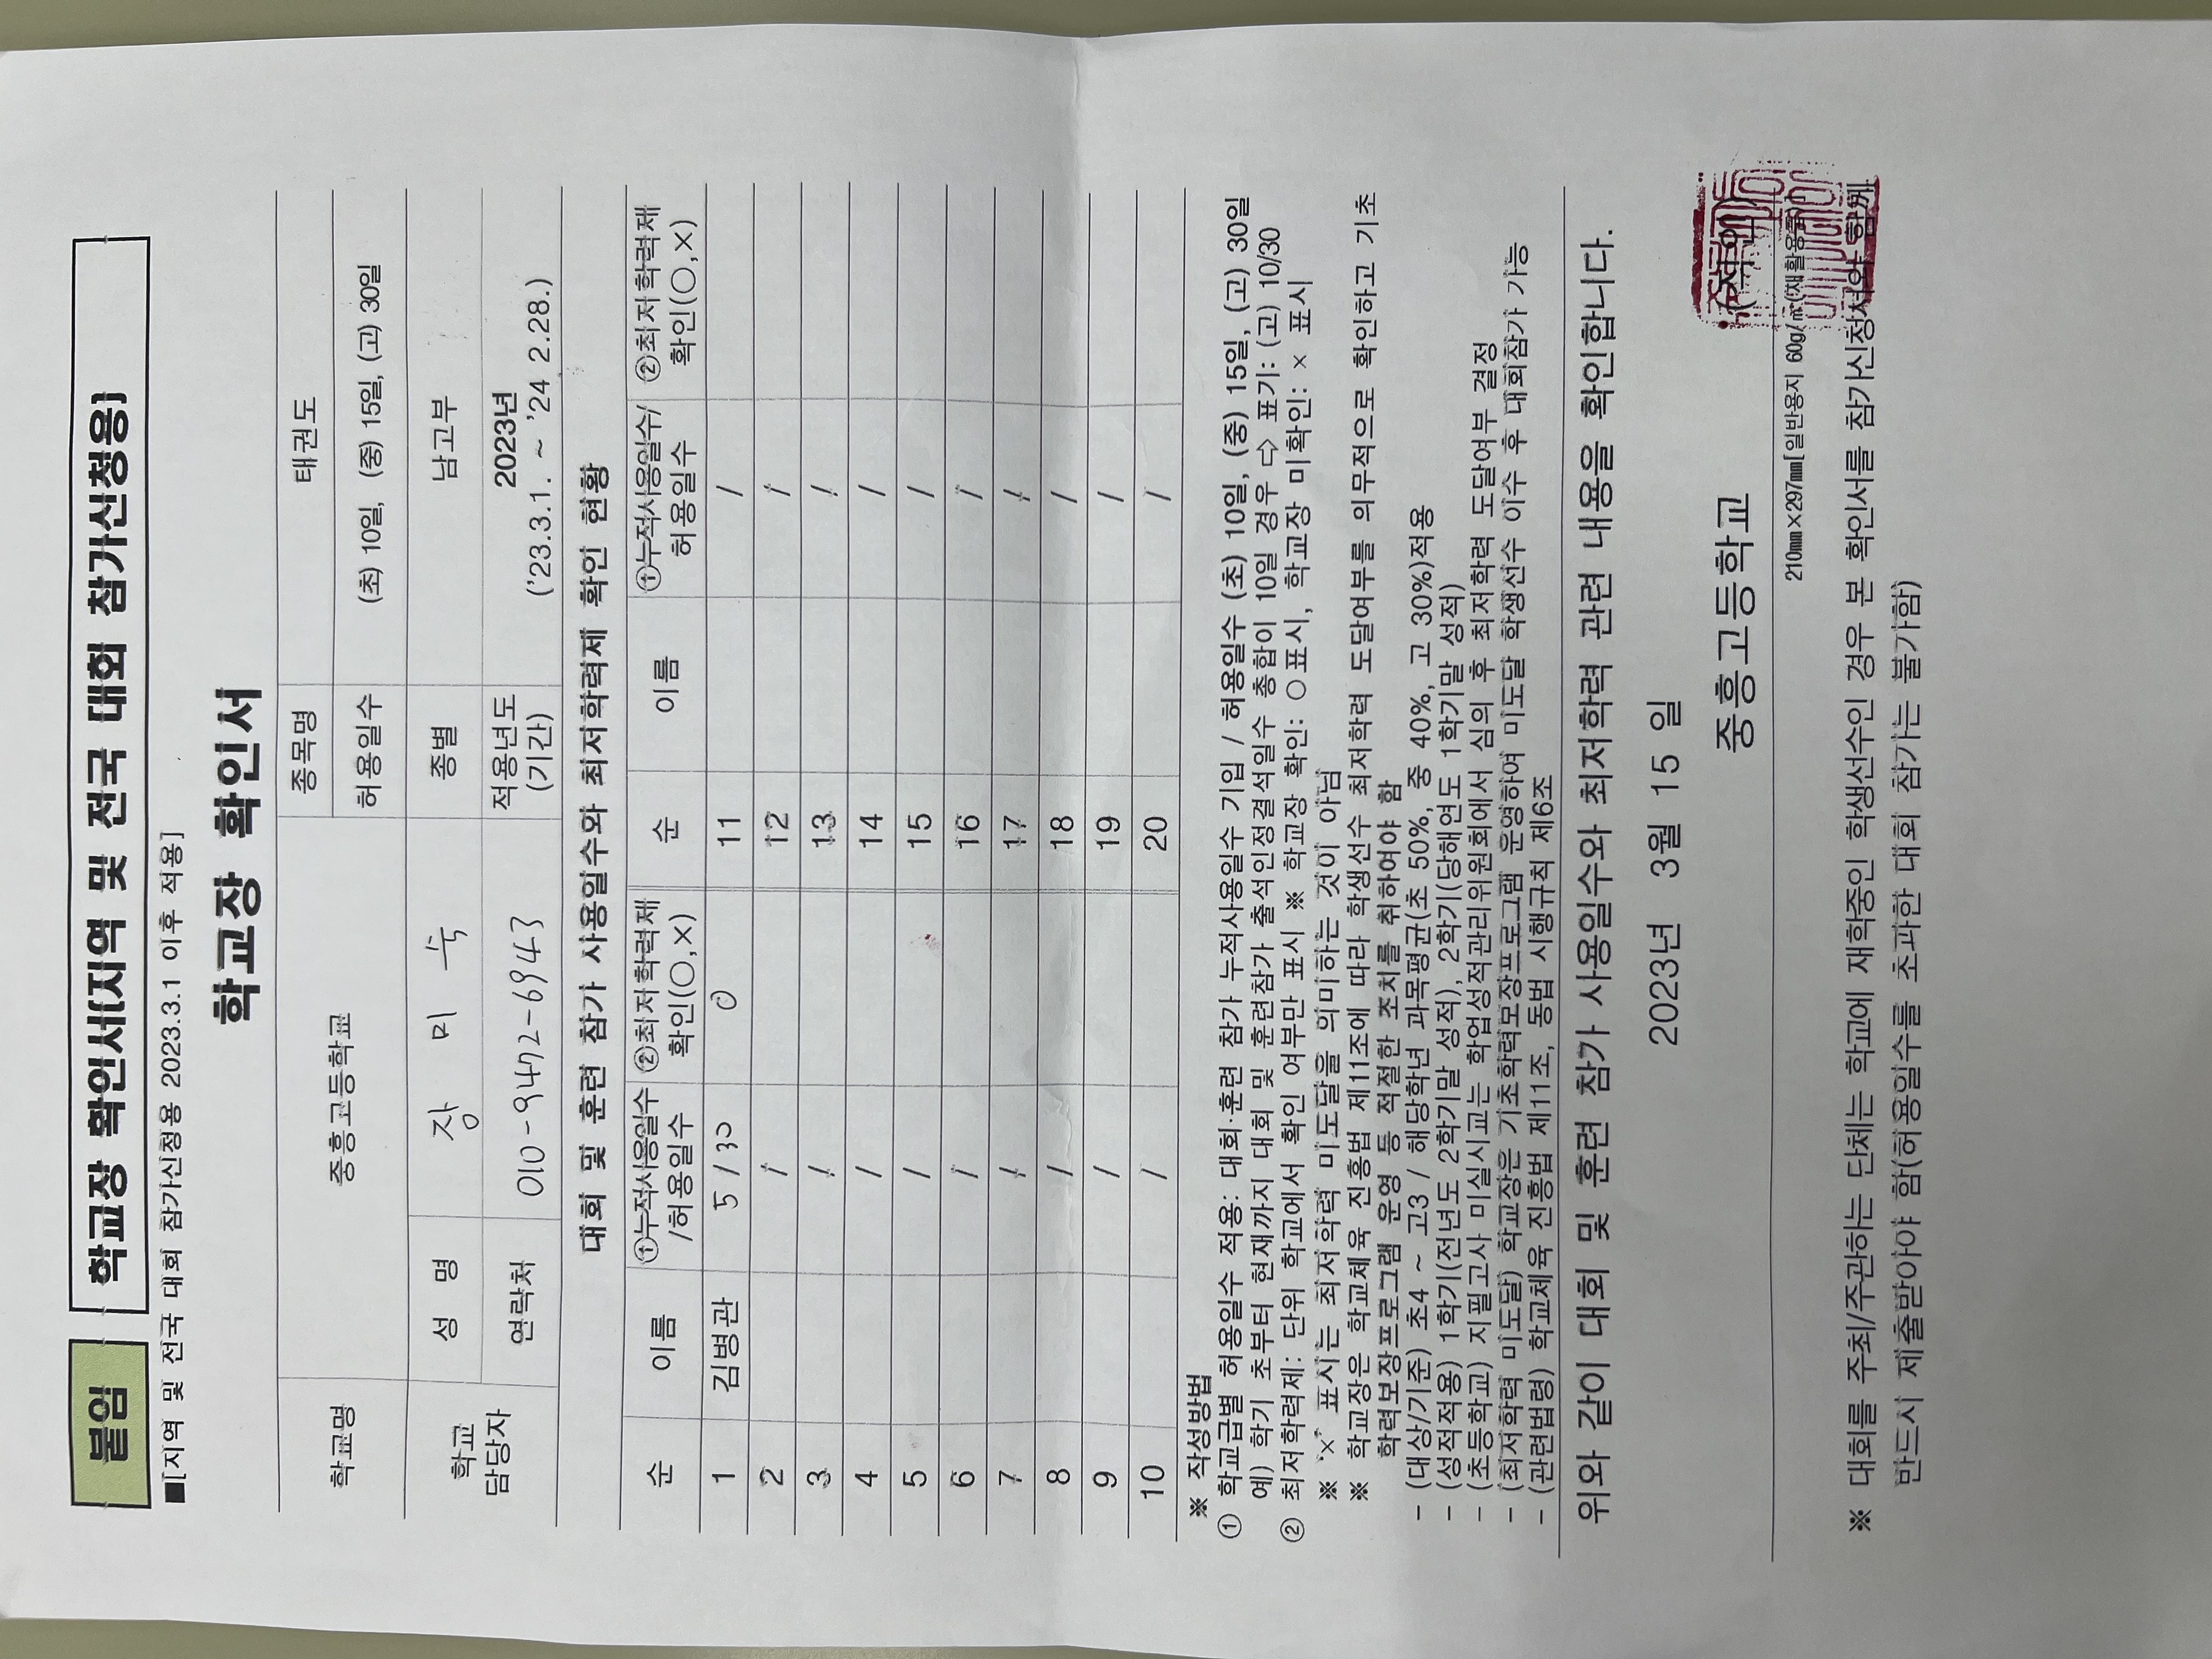 붙임
학교장 확인서(지역 및 전국 대회 참가신청용)
■[지역 및 전국 대회 참가신청용 2023.3.1 이후 적용]
학교장 확인서
학교명 중흥고등학교 종목명 태권도
허용일수 (초) 10일, (중) 15일, (고) 30일
학교
담당자
성 명 장 미 숙 종별 남고부
연락처 010-9472-6943 적용년도
(기간) 2023년
('23.3.1. ~ '24 2.28.)
대회 및 훈련 참가 사용일수와 최저학력제 확인 현황
순 이름 ①누적사용일수
/허용일수 ②최저학력제
확인(○,×) 순 이름 ①누적사용일수/
허용일수 ②최저학력제
확인(○,×)
1 김병관 5 / 30 O 11 /
2 / 12 /
3 / 13 /
4 / 14 /
5 / 15 /
6 / 16 /
7 / 17 /
8 / 18 /
9 / 19 /
10 / 20 /
※ 작성방법
① 학교급별 허용일수 적용: 대회·훈련 참가 누적사용일수 기입 / 허용일수 (초) 10일, (중) 15일, (고) 30일
예) 학기 초부터 현재까지 대회 및 훈련참가 출석인정결석일수 총합이 10일 경우 ⇨ 표기: (고) 10/30
② 최저학력제: 단위 학교에서 확인 여부만 표시 ※ 학교장 확인: ○표시, 학교장 미확인: × 표시
※ '×' 표시는 최저학력 미도달을 의미하는 것이 아님
※ 학교장은 학교체육 진흥법 제11조에 따라 학생선수 최저학력 도달여부를 의무적으로 확인하고 기초
학력보장프로그램 운영 등 적절한 조치를 취하여야 함
- (대상/기준) 초4 ~ 고3 / 해당학년 과목평균(초 50%, 중 40%, 고 30%)적용
- (성적적용) 1학기(전년도 2학기말 성적), 2학기(당해연도 1학기말 성적)
- (초등학교) 지필고사 미실시교는 학업성적관리위원회에서 심의 후 최저학력 도달여부 결정
- (최저학력 미도달) 학교장은 기초학력보장프로그램 운영하여 미도달 학생선수 이수 후 대회참가 가능
- (관련법령) 학교체육 진흥법 제11조, 동법 시행규칙 제6조
위와 같이 대회 및 훈련 참가 사용일수와 최저학력 관련 내용을 확인합니다.
2023년 3월 15 일
중흥고등학교 (직인)
210㎜×297㎜[일반용지 60g/㎡(재활용품)]
※ 대회를 주최/주관하는 단체는 학교에 재학중인 학생선수인 경우 본 확인서를 참가신청서와 함께
반드시 제출받아야 함(허용일수를 초과한 대회 참가는 불가함)